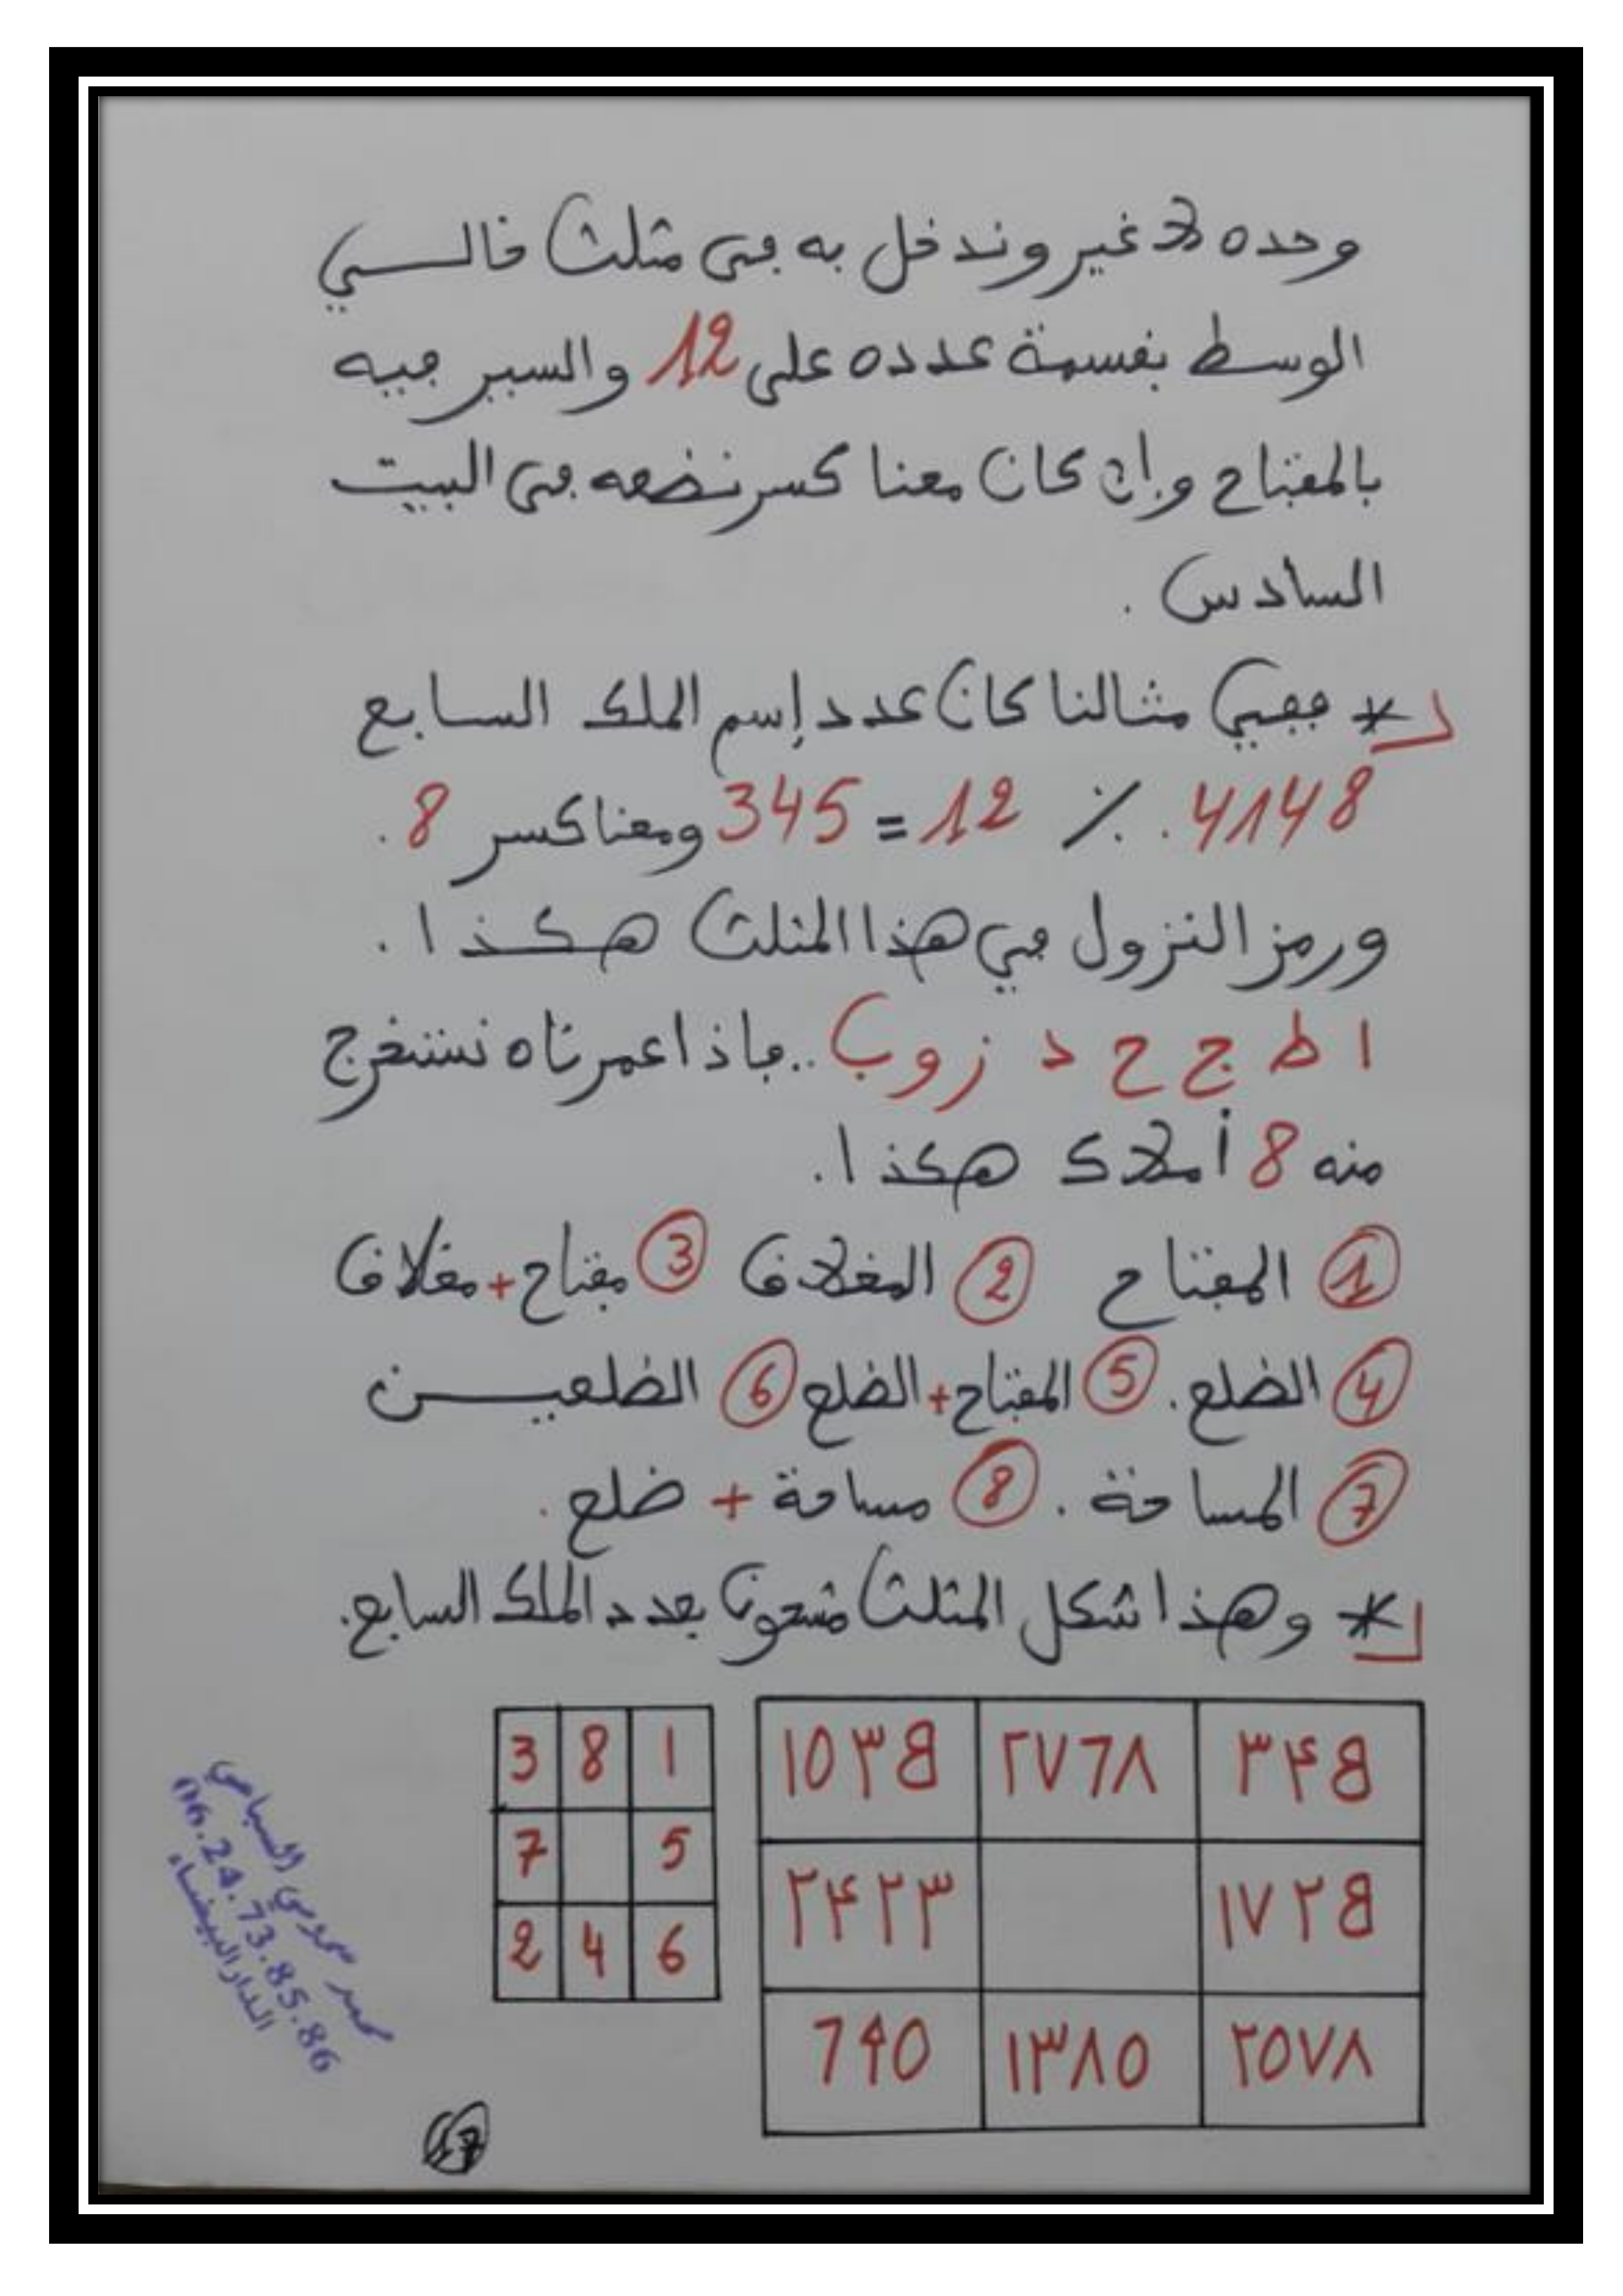 وحده لا غير وندخل به في مثلث خالي
الوسط بقسمة عدده على 12 والسير فيه
بالمفتاح وإن كان معنا كسر نضعه في البيت
السادس .
* ففي مثالنا كان عدد إسم الملك السابع
4148 ٪ 12 = 345 ومعنا كسر 8 .
ورمز النزول في هذا المثلث هكذا .
ا ط ج ح د ز و ب .. فإذا عمرناه نستخرج
منه 8 أملاك هكذا .
1 المفتاح 2 المغلاق 3 مفتاح + مغلاق
4 الضلع . 5 المفتاح + الضلع 6 الضلعين
7 المساحة . 8 مساحة + ضلع .
* وهذا شكل المثلث مشحون بعدد الملك السابع .
٣٤٥ ٢٧٦٨ ١٠٣٥
١٧٢٥ ٢٤٢٣
٢٠٧٨ ١٣٨٠ ٦٩٠
1 8 3
5 7
6 4 2
محمد
06.24.73.85.86
الدار البيضاء
17